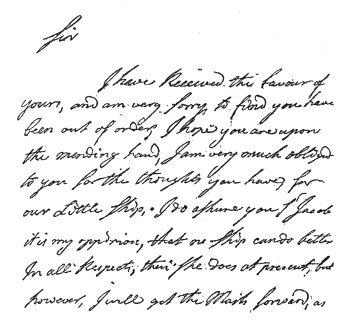 Sir
I have Received the favour of
yours, and am very sorry to find you have
been out of order, I hope you are upon
the mending hand, I am very much oblided
to you for the thoughts you have for
our Little Ship, I do assure you Sr Jacob
it is my oppinion, that no Ship can do better
In all Respects, then She does at present, but
however, I will get the Masts forward, as